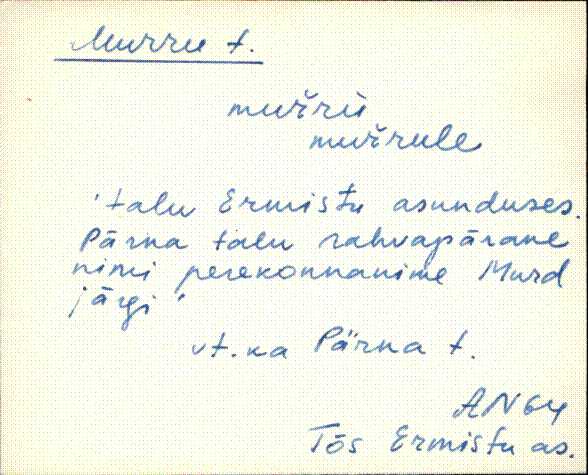 Murru t.
muŕrù
muŕrule
'talu Ermistu asunduses.
Pärna talu rahvapärane
nimi perekonnanime Murd
järgi'
vt. ka Pärna t.
AN64
Tõs Ermistu as.